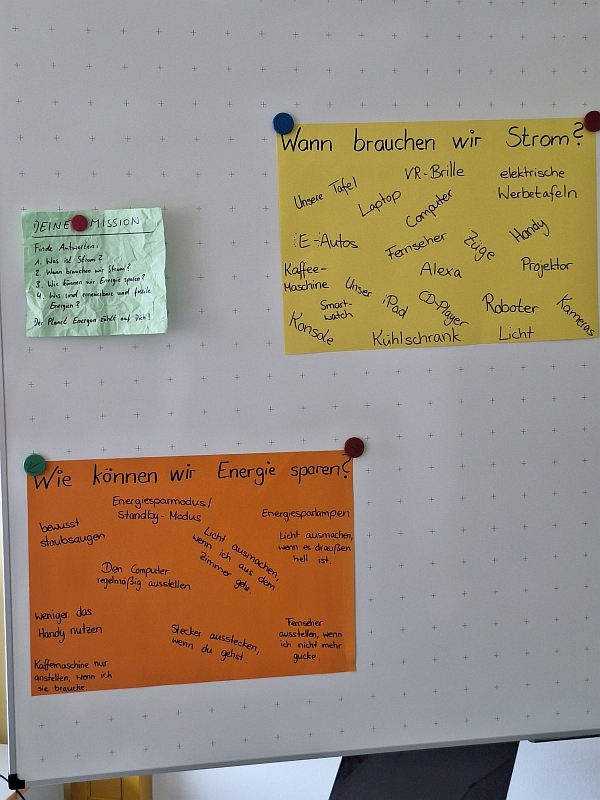 DEINE MISSION
Finde Antworten:
1. Was ist Strom?
2. Wann brauchen wir Strom?
3. Wie können wir Energie sparen?
4. Was sind erneuerbare und fossile
Energien?
Der Planet Energon zählt auf Dich!
Wann brauchen wir Strom?
Unsere Tafel
Laptop
VR-Brille
Computer
elektrische
Werbetafeln
E-Autos
Fernseher
Züge
Handy
Kaffee-
Maschine
Unser iPad
Alexa
Projektor
Smart-
watch
CD-Player
Roboter
Kameras
Konsole
Kühlschrank
Licht
Wie können wir Energie sparen?
Energiesparmodus/
Standby-Modus
Energiesparlampen
bewusst
staubsaugen
Licht ausmachen,
wenn ich aus dem
Zimmer gehe
Licht ausmachen,
wenn es draußen
hell ist.
Den Computer
regelmäßig ausstellen
weniger das
Handy nutzen
Stecker ausstecken,
wenn du gehst.
Fernseher
ausstellen, wenn
ich nicht mehr
gucke.
Kaffemaschine nur
anstellen, wenn ich
sie brauche.